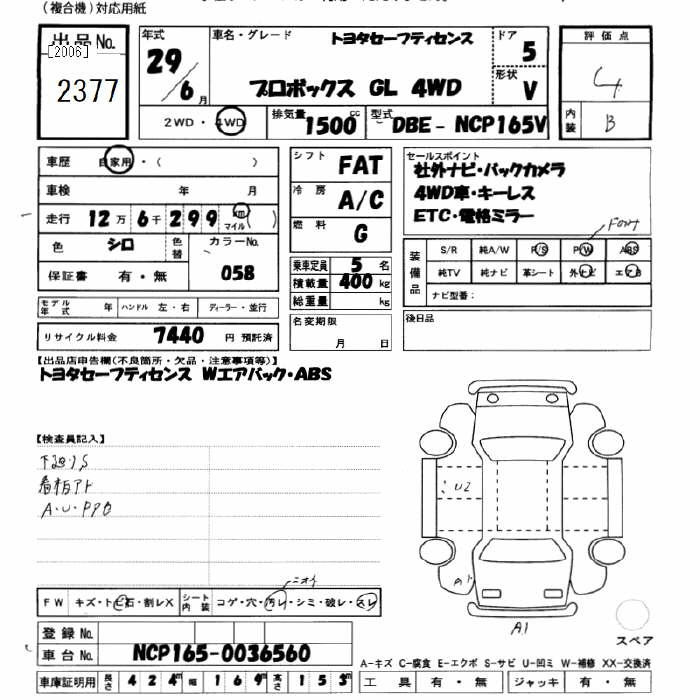 (複合機)対応用紙
出品No.
[2006]
2377
年式
29/6月
車名・グレード
トヨタセーフティセンス
プロボックス GL 4WD
ドア
5
形状
V
評価点
4
内装
B
2WD・4WD
排気量
1500cc
型式
DBE-NCP165V
車歴 自家用・( )
車検 年 月
走行 12万6千299 km マイル ( )
色 シロ 色替 カラーNo.
058
保証書 有・無
モデル年式 年 ハンドル 左・右 ディーラー・並行
リサイクル料金 7440 円 預託済
シフト FAT
冷房 A/C
燃料 G
乗車定員 5 名
積載量 400 kg
総重量 kg
名変期限
月 日
セールスポイント
社外ナビ・バックカメラ
4WD車・キーレス
ETC・電格ミラー
装備品
S/R 純A/W P/S P/W ABS
純TV 純ナビ 革シート 外ナビ エアB
ナビ型番:
後日品
【出品店申告欄(不良箇所・欠品・注意事項等)】
トヨタセーフティセンス Wエアバック・ABS
【検査員記入】
下廻りS
看板アト
A・U・PP0
:U2
A1
A1
スペア
ニオイ
FW キズ・トビ石・割レX シート内装 コゲ・穴・汚レ・シミ・破レ・スレ
登録No.
車台No. NCP165-0036560
A-キズ C-腐食 E-エクボ S-サビ U-凹ミ W-補修 XX-交換済
車庫証明用 長さ 424m 幅 169m 高さ 153m
工具 有・無 ジャッキ 有・無